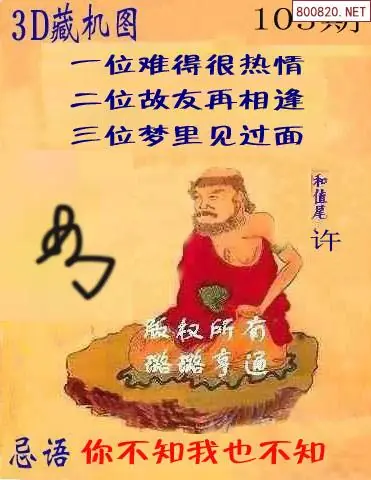 800820.NET
3D藏机图
103期
一位难得很热情
二位故友再相逢
三位梦里见过面
和值尾
许
版权所有
璐璐亨通
忌语 你不知我也不知